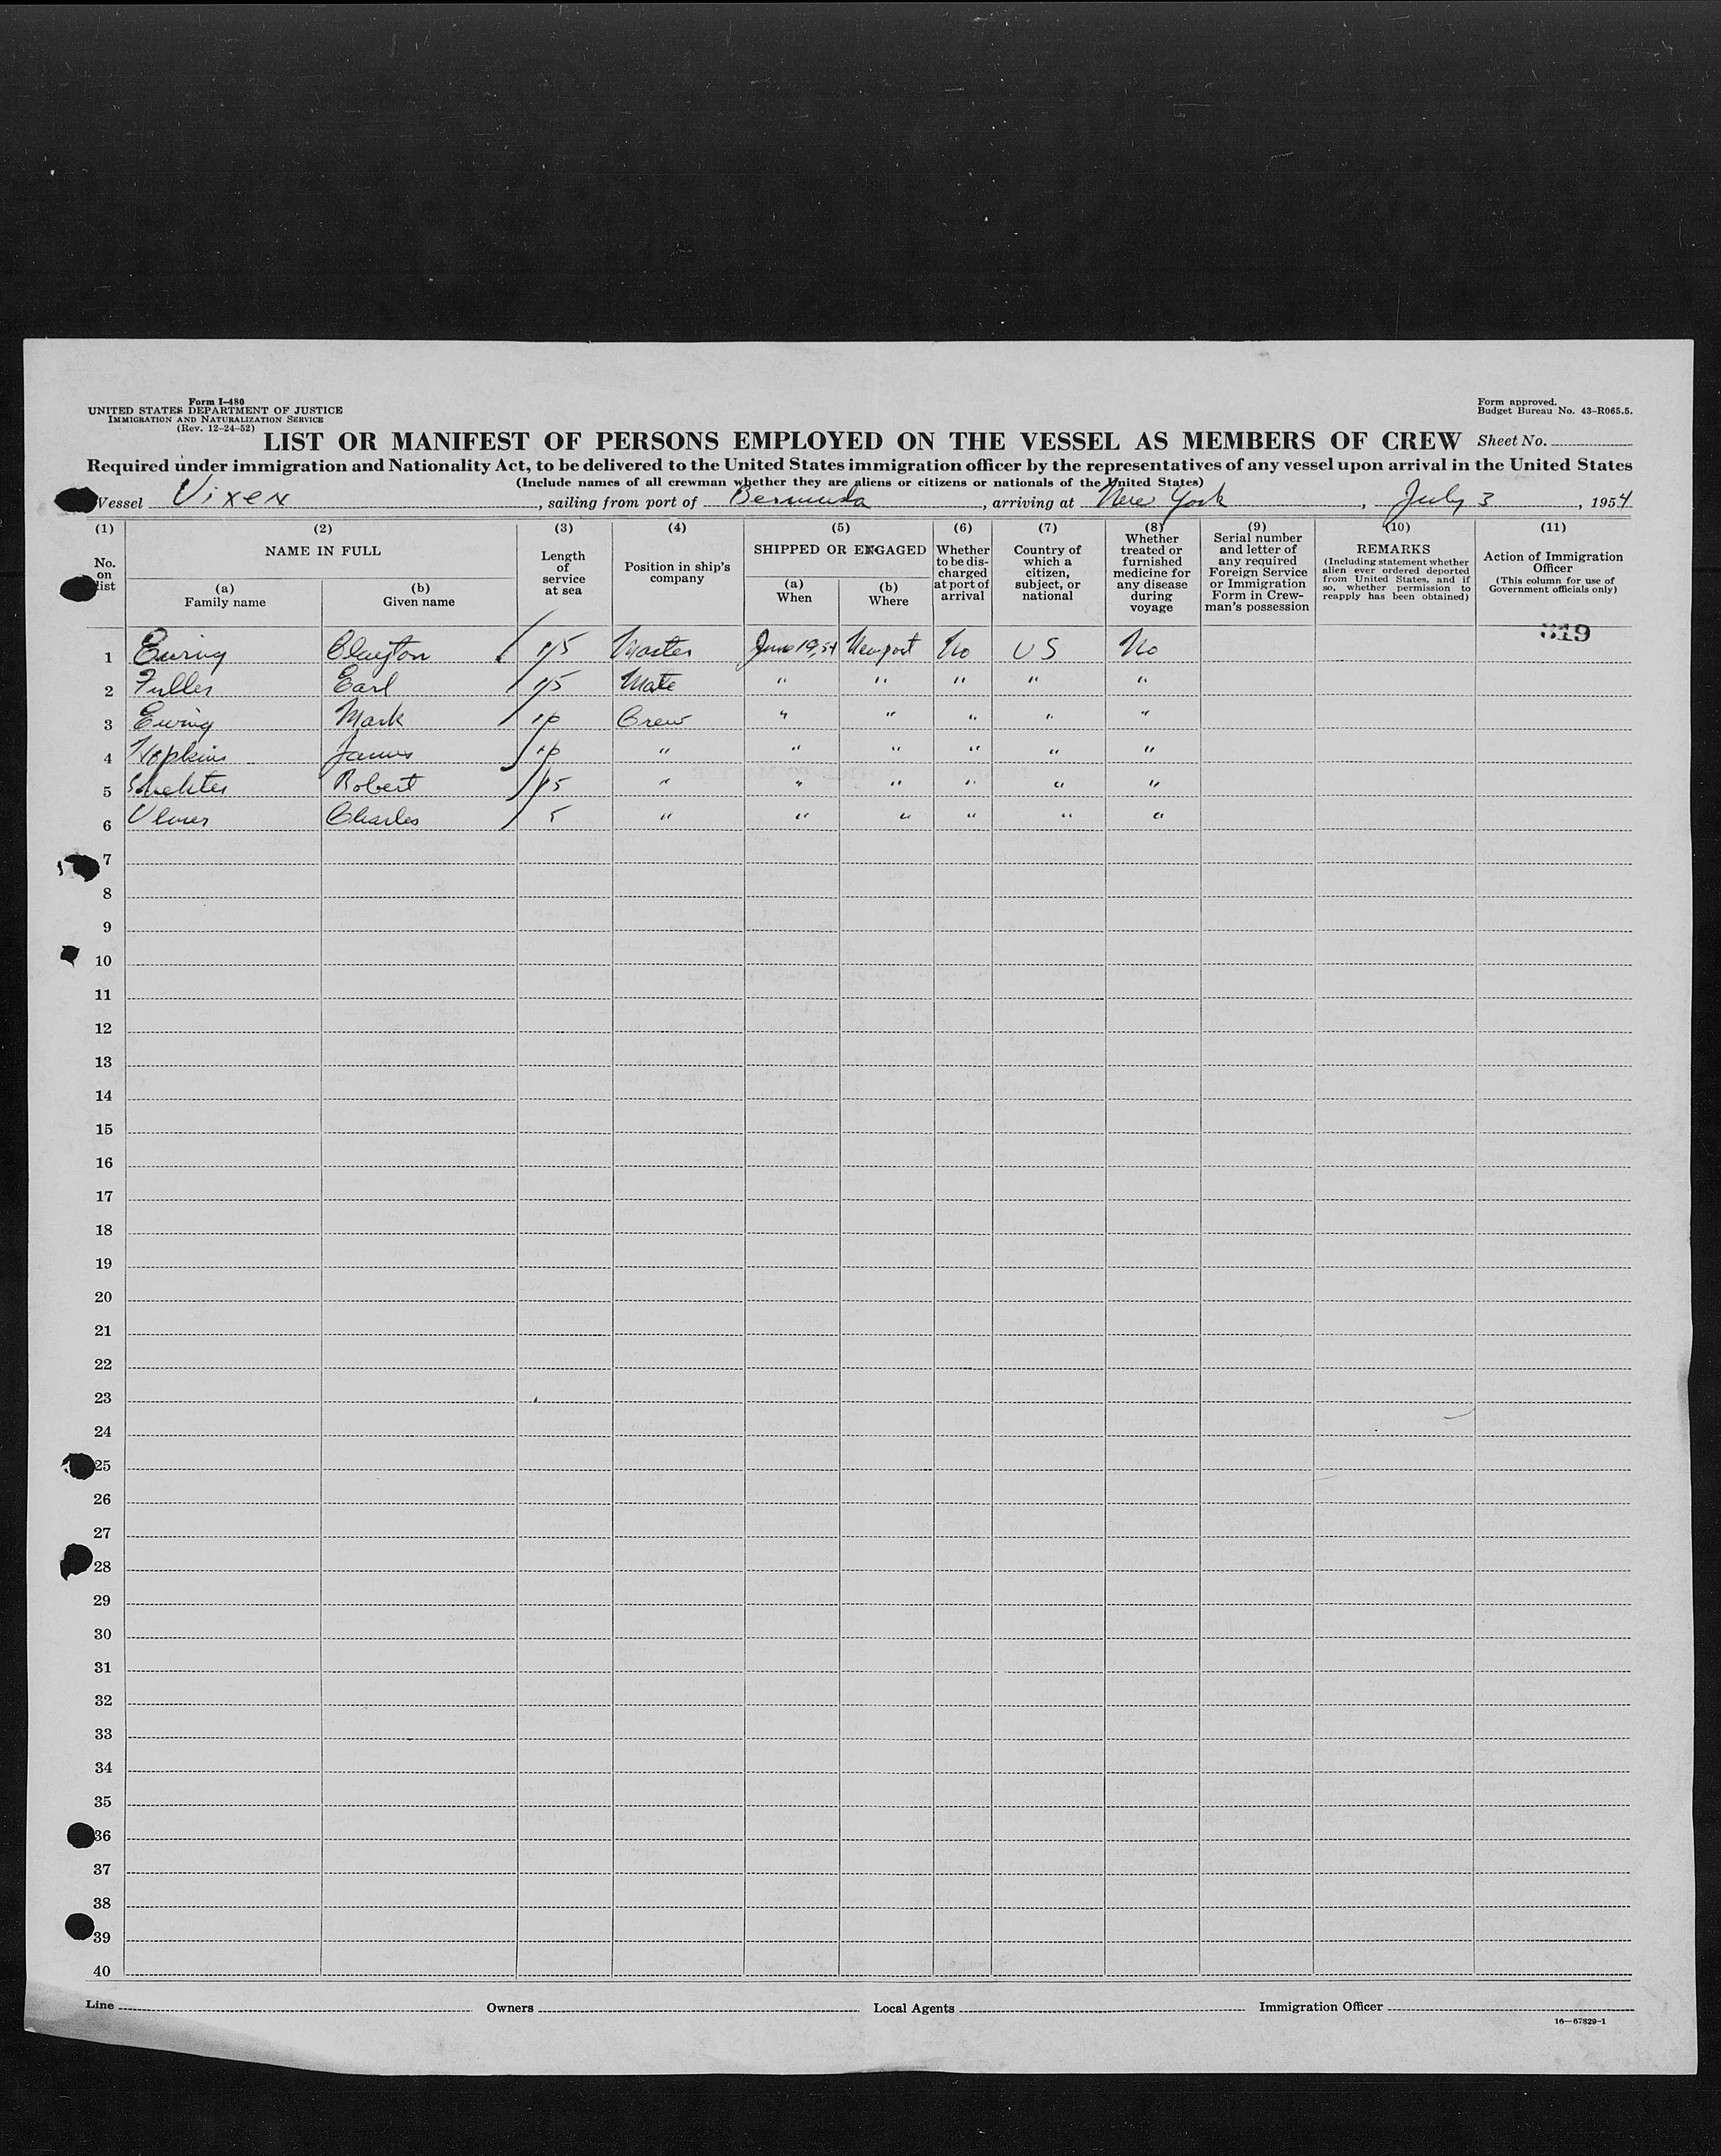 Form I-480
UNITED STATES DEPARTMENT OF JUSTICE
IMMIGRATION AND NATURALIZATION SERVICE
(Rev. 12-24-52)
Form approved.
Budget Bureau No. 43-R065.5.
LIST OR MANIFEST OF PERSONS EMPLOYED ON THE VESSEL AS MEMBERS OF CREW Sheet No.
Required under immigration and Nationality Act, to be delivered to the United States immigration officer by the representatives of any vessel upon arrival in the United States
(Include names of all crewman whether they are aliens or citizens or nationals of the United States)
Vessel Vixen, sailing from port of Bermuda, arriving at New York, July 3, 1954
(1) No. on list
(2) NAME IN FULL
(a) Family name
(b) Given name
(3) Length of service at sea
(4) Position in ship's company
(5) SHIPPED OR ENGAGED
(a) When
(b) Where
(6) Whether to be discharged at port of arrival
(7) Country of which a citizen, subject, or national
(8) Whether treated or furnished medicine for any disease during voyage
(9) Serial number and letter of any required Foreign Service or Immigration Form in Crewman's possession
(10) REMARKS (Including statement whether alien ever ordered deported from United States, and if so, whether permission to reapply has been obtained)
(11) Action of Immigration Officer (This column for use of Government officials only)
319
1 Ewing Clayton 15 Master June 19, 54 Newport No US No
2 Fuller Earl 15 Mate " " " " "
3 Ewing Mark 10 Crew " " " " "
4 Hopkins James 10 " " " " " "
5 Robert 15 " " " " " "
6 Ulmer Charles 5 " " " " " "
7
8
9
10
11
12
13
14
15
16
17
18
19
20
21
22
23
24
25
26
27
28
29
30
31
32
33
34
35
36
37
38
39
40
Line Owners Local Agents Immigration Officer
16—67829-1